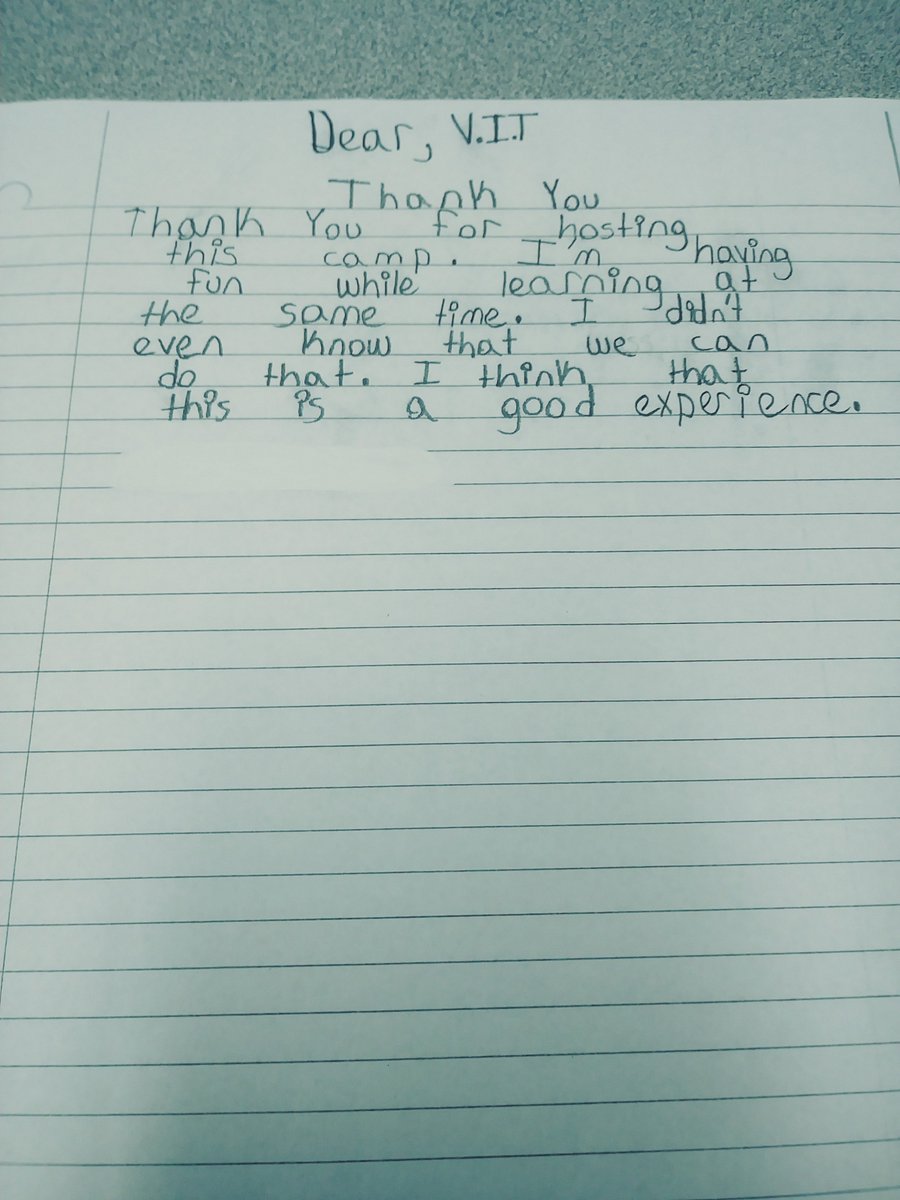 Dear, V.I.T
Thank You
Thank You for hosting
this camp. I'm having
fun while learning at
the same time. I didn't
even know that we can
do that. I think that
this is a good experience.